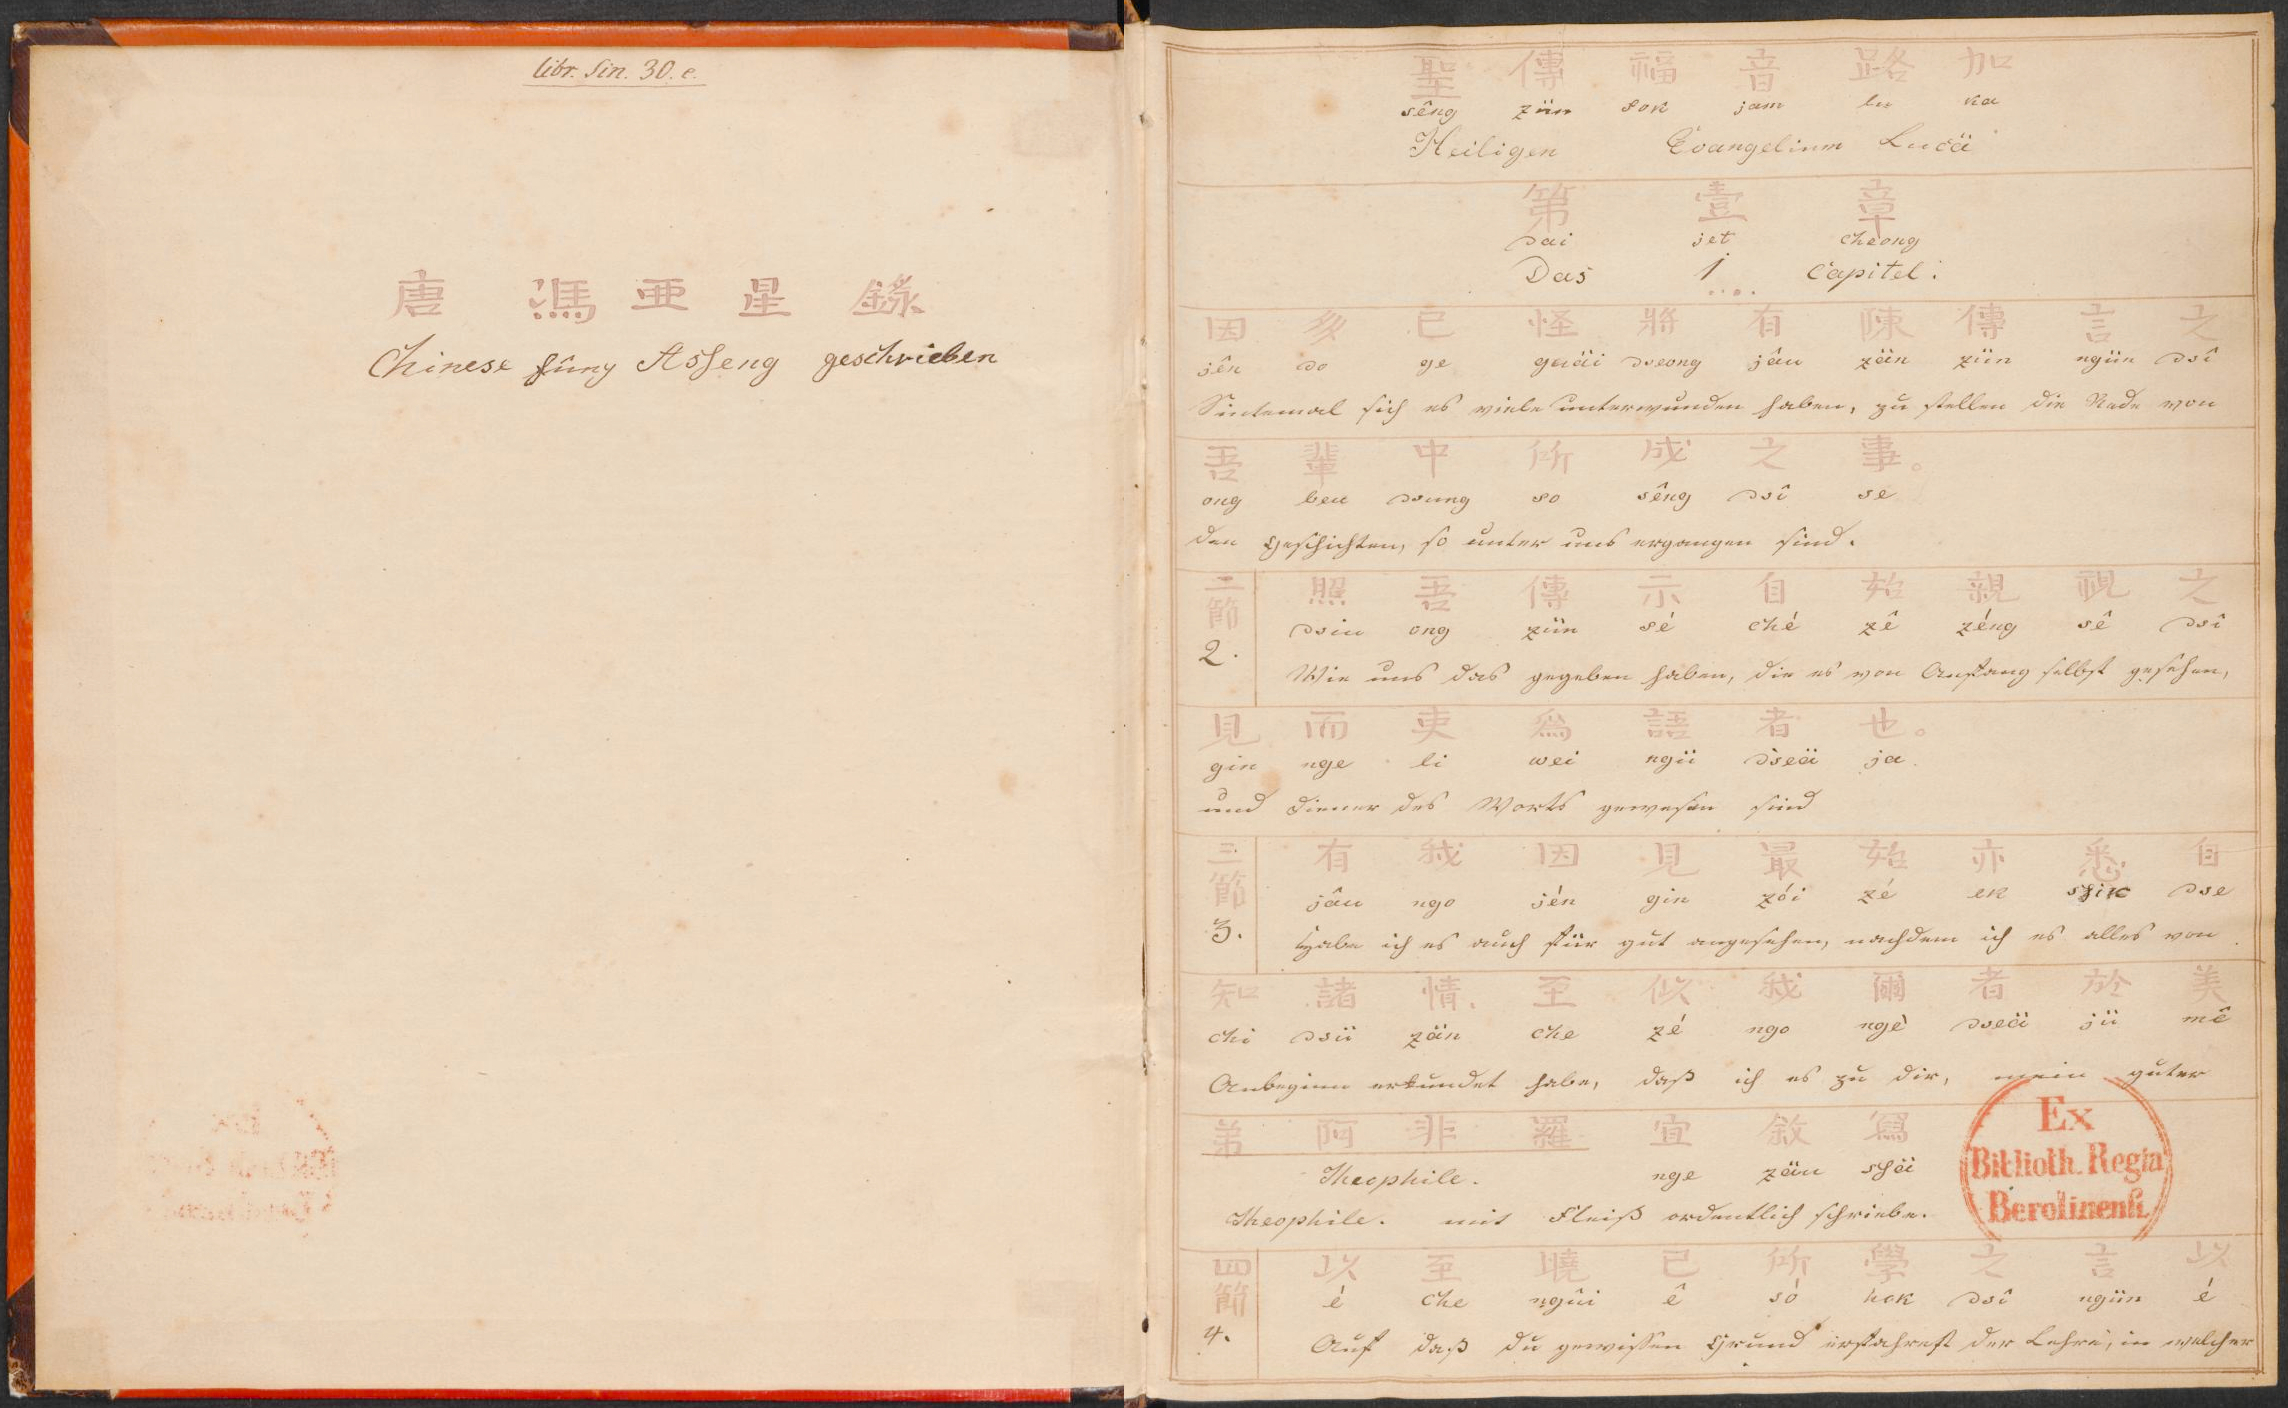 libr. Sin. 30. e.
唐 馮 亜 星 錄
Chinese fûng Asseng geschrieben
聖 傳 福 音 路 加
sêng zün fok jam lu ka
Heiligen Evangelium Lucä
第 壹 章
dai jet cheong
Das 1 Capitel.
因 多 已 怪 將 有 陳 傳 言 之
jên do ge guäi dseong jâu zän zün ngün dsî
Sintemal sich es viele unterwunden haben, zu stellen die Rede von
吾 輩 中 所 成 之 事。
ong beu dsung so sêng dsî se
den Geschichten, so unter uns ergangen sind.
二節 照 吾 傳 示 自 始 親 視 之
2. dsiu ong zün sé ché zê zéng sê dsî
Wie uns das gegeben haben, die es von Anfang selbst gesehen,
見 而 吏 爲 語 者 也。
gin nge li wei ngü dseä ja.
und Diener des Worts gewesen sind
三節 有 我 因 見 最 始 亦 悉 自
3. jâu ngo jén gin zói zé ek sik dse
Habe ich es auch für gut angesehen, nachdem ich es alles von
知 諸 情、 至 似 我 爾 者 於 美
chi dsü zän che zé ngo ngè dseä jü mê
Anbeginn erkundet habe, daß ich es zu dir, mein guter
弟 阿 非 羅 宜 敘 寫
Theophile. nge zäu shä
Theophile. mit Fleiß ordentlich schriebe.
Ex
Biblioth. Regia
Berolinensi.
四節 以 至 曉 已 所 學 之 言 以
4. é che ngûi ê só hok dsî ngün é
Auf daß du gewissen Grund erfahrest der Lehre, in welcher